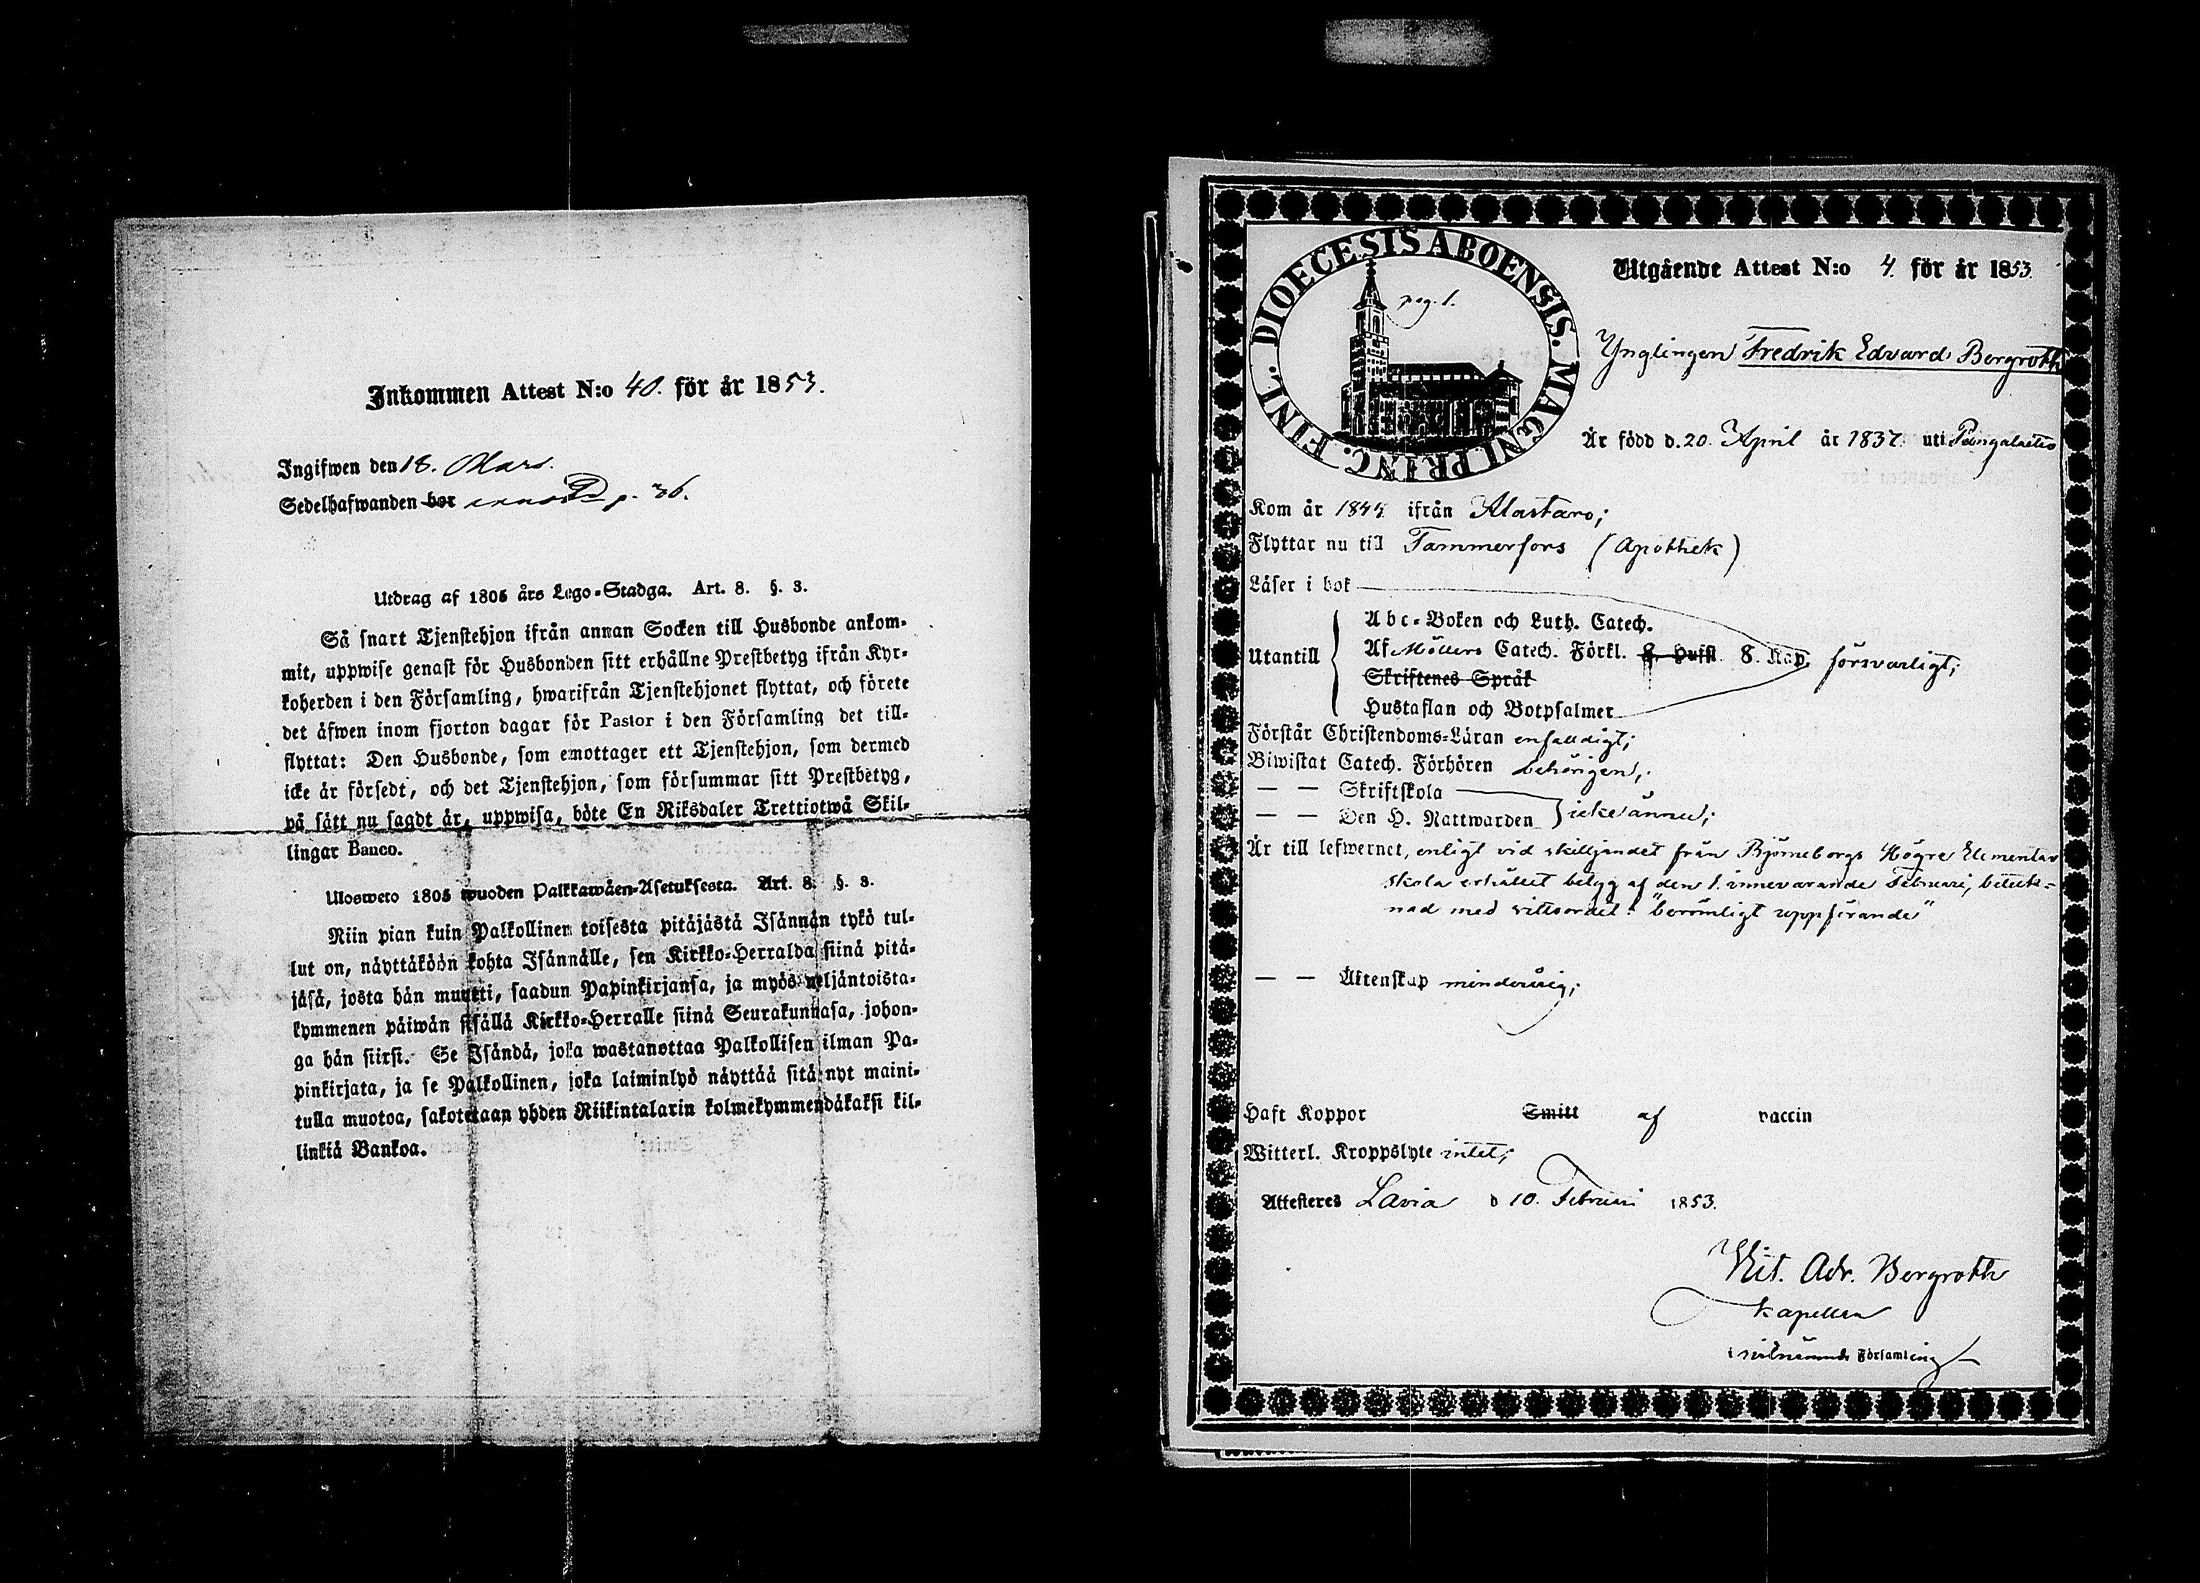 Inkommen Attest N:o 40. för år 1853.
Ingifwen den 18. Mars.
Sedelhafwanden bor p. 36.
Utdrag af 1805 års Lego-Stadga. Art. 8. §. 3.
Så snart Tjenstehjon ifrån annan Socken till Husbonde ankom-
mit, uppwise genast för Husbonden sitt erhållne Prestbetyg ifrån Kyr-
koherden i den Församling, hwarifrån Tjenstehjonet flyttat, och förete
det äfwen inom fjorton dagar för Pastor i den Församling det till-
flyttat: Den Husbonde, som emottager ett Tjenstehjon, som dermed
icke är försedt, och det Tjenstehjon, som försummar sitt Prestbetyg,
på sätt nu sagdt är, uppwisa, böte En Riksdaler Trettiotwå Skil-
lingar Banco.
Ulosweto 1805 wuoden Palkkawäen-Asetuksesta. Art. 8. §. 3.
Niin pian kuin Palkollinen toisesta pitäjästä Isännän tykö tul-
lut on, näyttäköön kohta Isännälle, sen Kirkko-Herralda siinä pitä-
jäsä, josta hän muutti, saadun Papinkirjansa, ja myös neljäntoista-
kymmenen päiwän sisällä Kirkko-Herralle siinä Seurakunnasa, johon-
ga hän siirsi. Se Isändä, joka wastanottaa Palkollisen ilman Pa-
pinkirjata, ja se Palkollinen, joka laiminlyö näyttää sitä nyt maini-
tulla muotoa, sakotetaan yhden Riikintalarin kolmekymmendäkaksi kil-
linkiä Bankoa.
DIOECESIS ABOENSIS. MAGNI PRINC. FINL.
pag. 1.
Utgående Attest N:o 4. för år 1853.
Ynglingen Fredrik Edvard Bergroth
Är född d. 20. April år 1837. uti Pungalaitio
Kom år 1844 ifrån Alastaro;
Flyttar nu till Tammerfors (Apothek)
Läser i bok
Utantill
Abc-Boken och Luth. Catech.
Af Möllers Catech. Förkl. 8. Hufst. 8. Kap. försvarligt;
Skriftenes Språk
Hustaflan och Botpsalmer
Förstår Christendoms-Läran enfaldigt;
Biwistat Catech. Förhören behörigen;
— — Skriftskola
— — Den H. Nattwarden icke ännu;
Är till lefwernet, enligt vid skiljandet från Björneborgs Högre Elementar
skola erhållet betyg af den 1. innevarande Februari, beteck-
nad med vittsordet: "berömligt uppförande"
— — Äktenskap minderårig;
Haft Koppor Smitt af vaccin
Witterl. Kroppslyte intet;
Attesteras Lavia d 10. Februari 1853.
Vit. Adr. Bergroth
Kapellan
i nämnde Församling